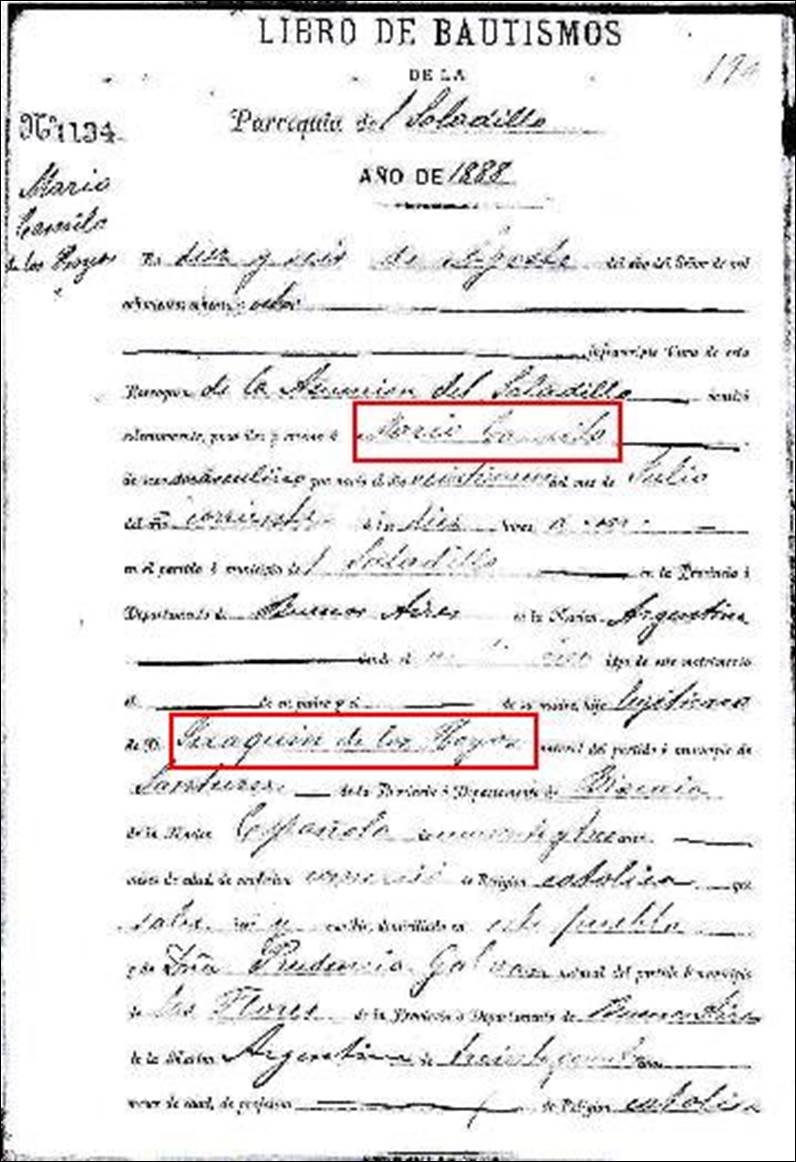 LIBRO DE BAUTISMOS
DE LA
Parroquia del Saladillo
AÑO DE 1888
Nº 1134
Mario
Camilo
de los Hoyos
En diez y seis de Agosto del año del Señor de mil
ochocientos ochenta y ocho
infrascripto Cura de esta
Parroquia de la Asuncion del Saladillo bautizó
solemnemente, puso óleo y crisma á Mario Camilo
de sexo masculino que nació el dia veintinueve del mes de Julio
del año corriente á las diez horas a.m.
en el partido ó municipio del Saladillo en la Provincia ó
Departamento de Buenos Aires en la Nacion Argentina
hijo de este matrimonio
el de su padre y el de su madre, hijo legítimo
de D. Joaquin de los Hoyos natural del partido ó municipio de
Santurce de la Provincia ó Departamento de Viscaia
de la Nacion Española de años
de edad, de profesion comercio de Religion catolica que
sabe escribir, domiciliado en este pueblo
y de Dña Prudencia Galvan natural del partido ó municipio
de Las Flores de la Provincia ó Departamento de Buenos Aires
de la Nacion Argentina de años
de edad, de profesion de Religion catolica